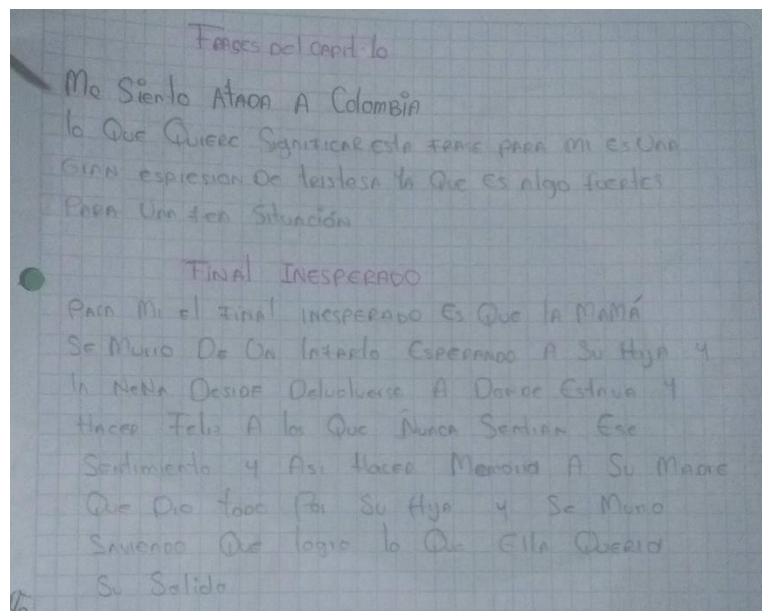 Frases Del Capitulo
Me Siento Atada A Colombia
lo Que Quiere Significar esta frase para mi es Una
Gran espresion De tristesa ya Que es algo fuertes
Para Una Situación
FINAl INESPERADO
Para Mi el final INESPERADO Es Que lA MAMÁ
Se Murio De Un Infarto Esperando A Su Hija y
la Nena Deside Debolverse A Donde Estava y
Hacer Feliz A los Que Nunca Sentian Ese
Sentimiento y Asi Hacer Memoria A Su Madre
Que Dio todo Por Su Hija y Se Murio
Saviendo Que logro lo Que Ella Queria
Su Salida